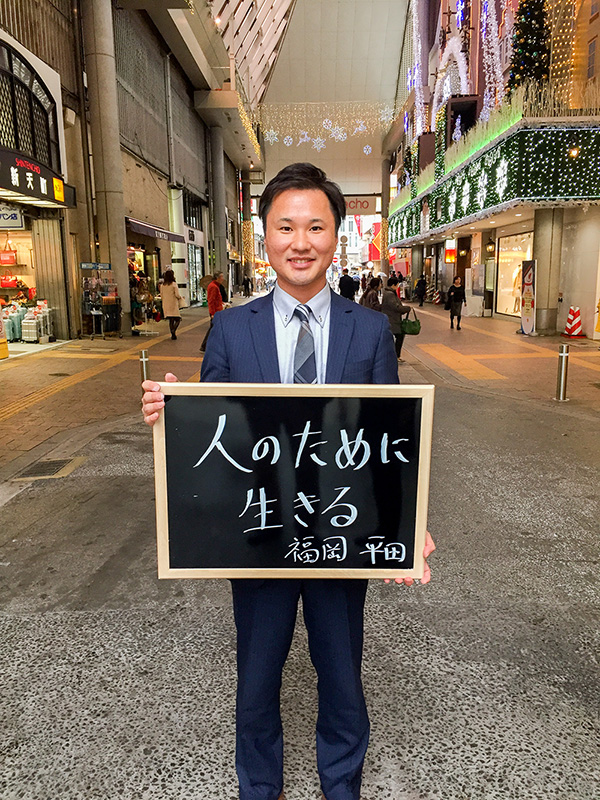 SHINTENCHO
新天町
人のために
生きる
福岡 平田